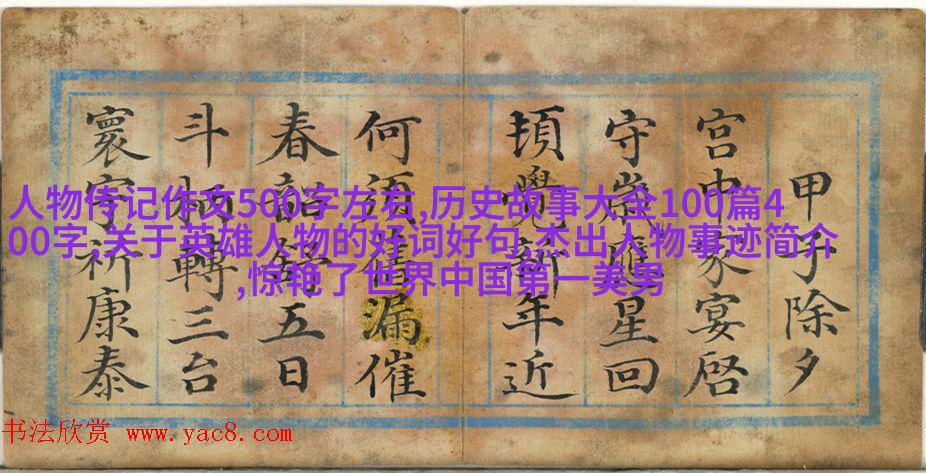 甲子除夕
宮中家宴啓
守歲應星回
頓覺新年近
何須借漏催
春韶五日
斗柄轉三台
寰宇祈康泰
人物传记作文500字左右,历史故事大全100篇4
00字,关于英雄人物的好词好句,杰出人物事迹简介
,惊艳了世界中国第一美男
书法欣赏 www.yac8.com